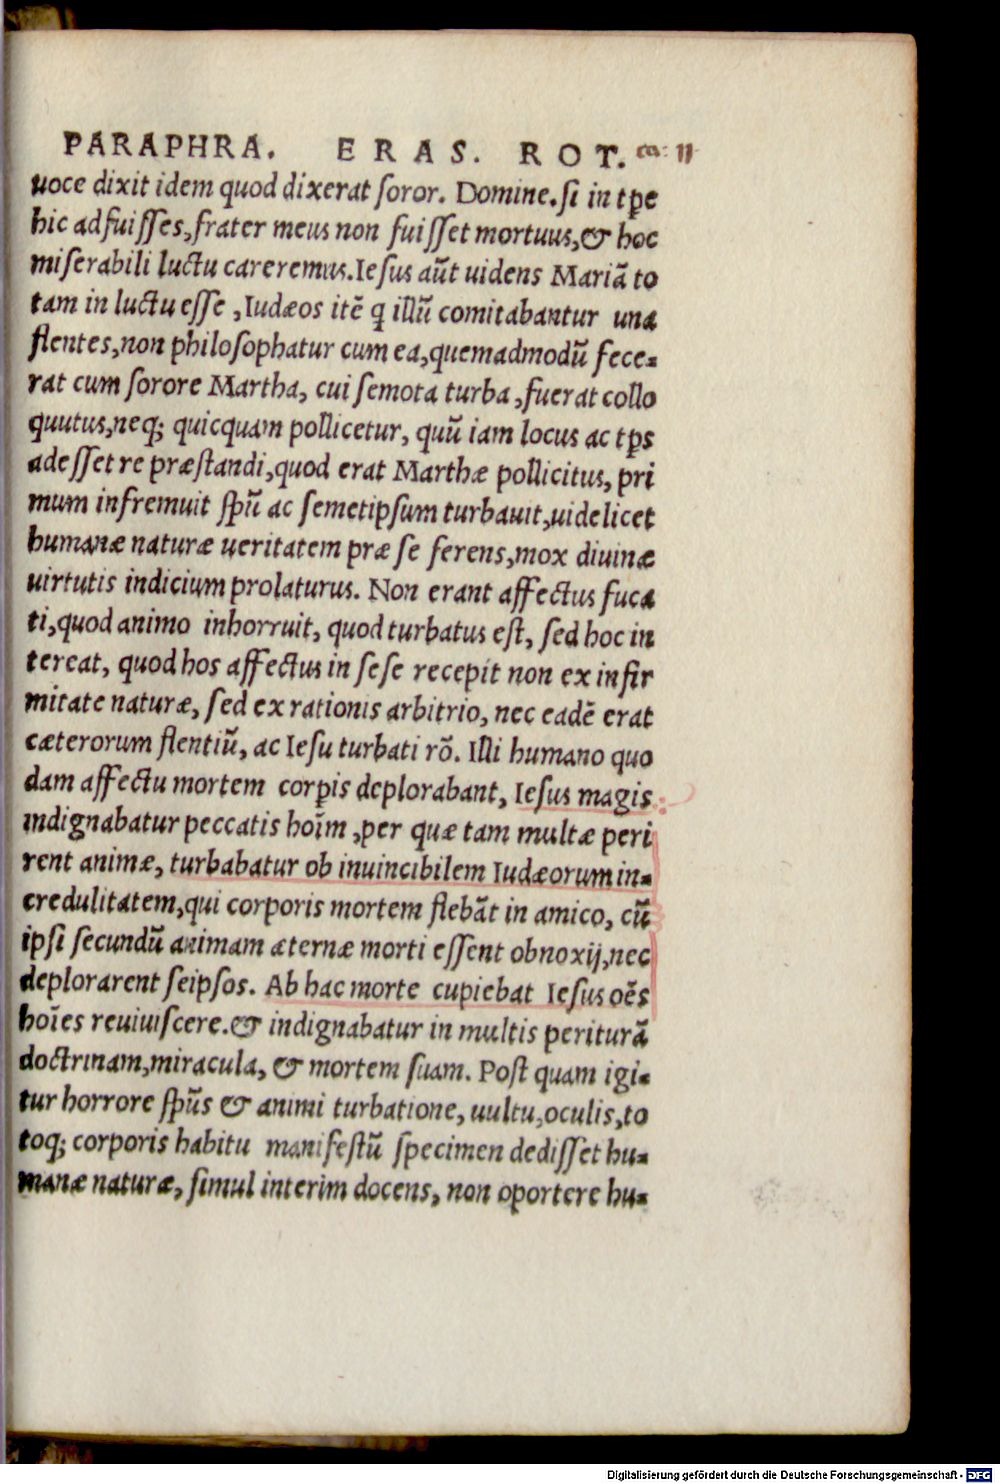 PARAPHRA. ERAS. ROT. ca: 11
uoce dixit idem quod dixerat ſoror. Domine.ſi in tp̄e
hic adfuiſſes,frater meus non fuiſſet mortuus,& hoc
miſerabili luctu careremus.Ieſus aūt uidens Mariā to
tam in luctu eſſe ,Iudæos itē q illū comitabantur una
flentes,non philoſophatur cum ea,quemadmodū fece-
rat cum ſorore Martha, cui ſemota turba ,fuerat collo
quutus,neq; quicquam pollicetur, quū iam locus ac tp̄s
adeſſet re præſtandi,quod erat Marthæ pollicitus, pri
mum infremuit ſpū ac ſemetipſum turbauit,uidelicet
humanæ naturæ ueritatem præ ſe ferens,mox diuinæ
uirtutis indicium prolaturus. Non erant affectus fuca
ti,quod animo inhorruit, quod turbatus eſt, ſed hoc in
tereat, quod hos affectus in ſeſe recepit non ex infir
mitate naturæ, ſed ex rationis arbitrio, nec eadē erat
cæterorum flentiū, ac Ieſu turbati rō. Illi humano quo
dam affectu mortem corꝑis deplorabant, Ieſus magis
indignabatur peccatis hoīm ,per quæ tam multæ peri
rent animæ, turbabatur ob inuincibilem Iudæorum in-
credulitatem,qui corporis mortem flebāt in amico, cū
ipſi ſecundū animam æternæ morti eſſent obnoxij,nec
deplorarent ſeipſos. Ab hac morte cupiebat Ieſus oēs
hoīes reuiuiſcere.& indignabatur in multis periturā
doctrinam,miracula, & mortem ſuam. Poſt quam igi-
tur horrore ſpūs & animi turbatione, uultu,oculis,to
toq; corporis habitu manifeſtū ſpecimen dediſſet hu-
manæ naturæ, ſimul interim docens, non oportere hu-
Digitalisierung gefördert durch die Deutsche Forschungsgemeinschaft - DFG